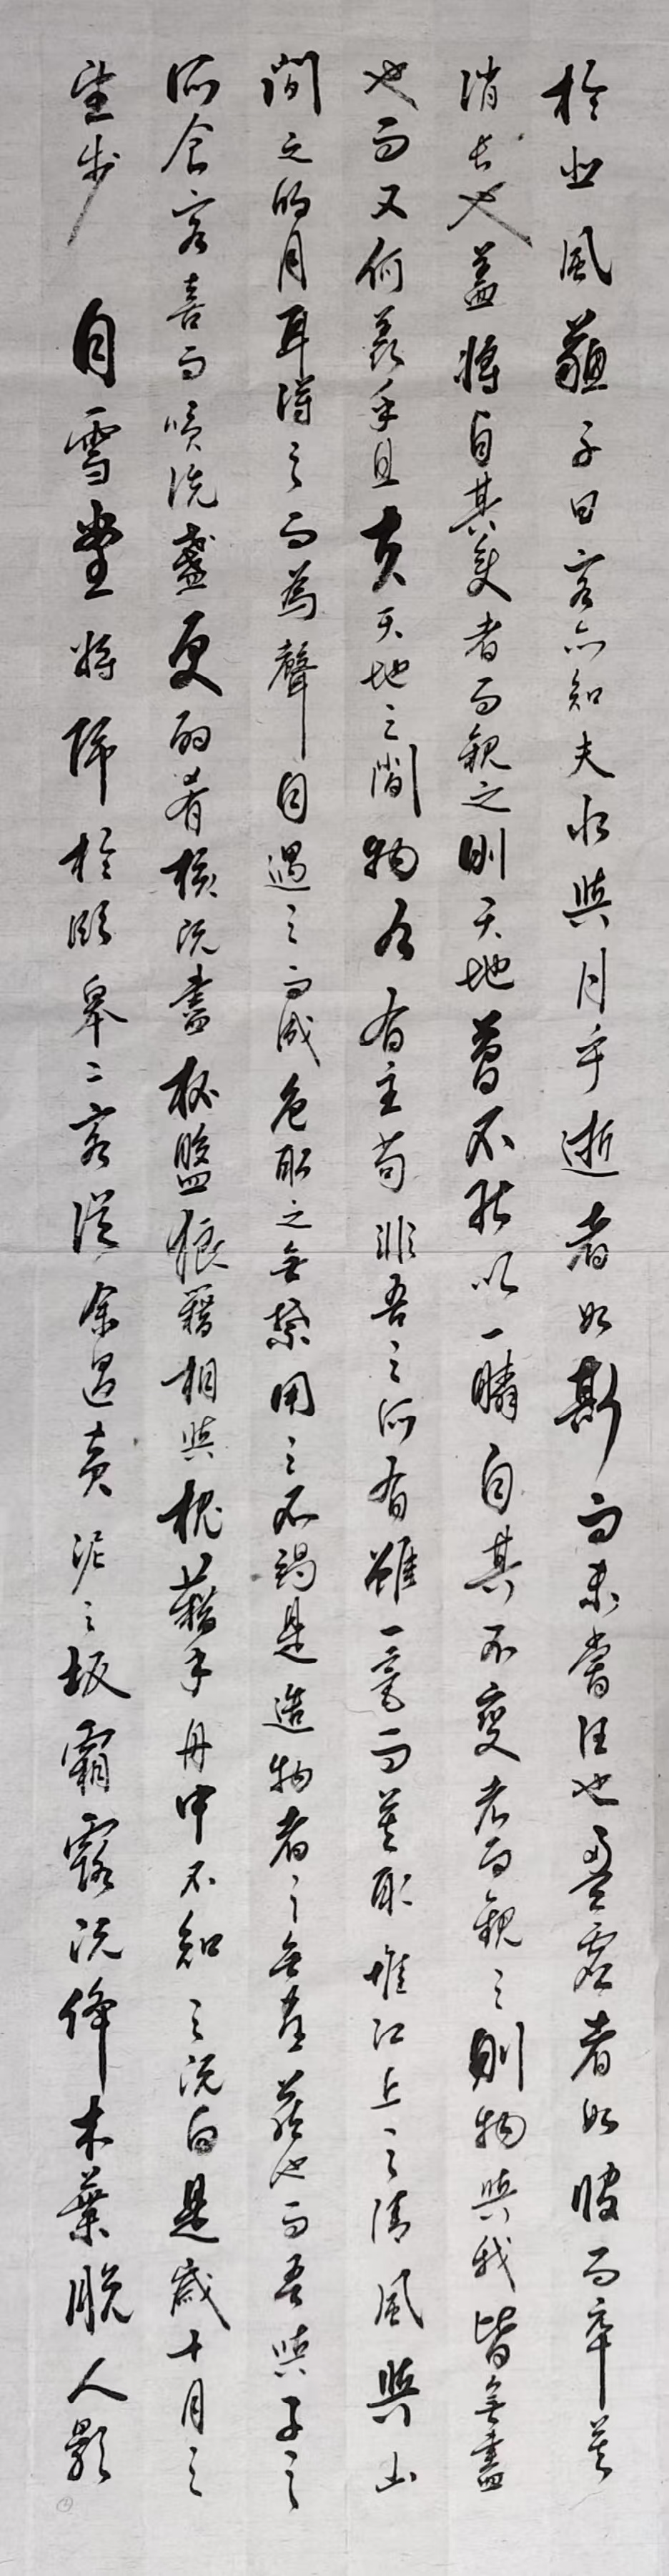 於悲風蘇子曰客亦知夫水與月乎逝者如斯而未嘗往也盈虛者如彼而卒莫
消長也蓋將自其變者而觀之則天地曾不能以一瞬自其不變者而觀之則物與我皆無盡
也而又何羨乎且夫天地之間物各有主苟非吾之所有雖一毫而莫取惟江上之清風與山
間之明月耳得之而為聲目遇之而成色取之無禁用之不竭是造物者之無盡藏也而吾與子之
所食客喜而笑洗盞更酌肴核既盡杯盤狼籍相與枕藉乎舟中不知之既白是歲十月之
望步自雪堂將歸於臨皋二客從余過黃泥之坂霜露既降木葉脫人影